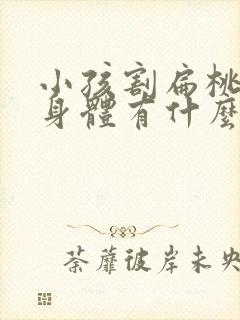 小孩割扁桃
身體有什麼
荼蘼彼岸未央